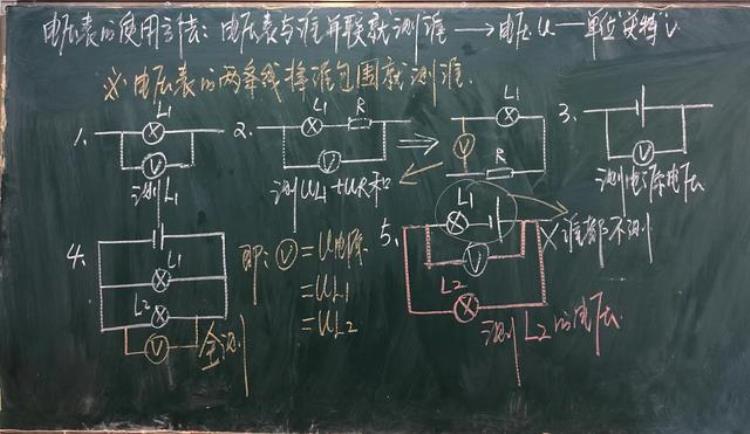 电压表的使用方法:电压表与谁并联就测谁→电压:U—单位"伏特"V
※:电压表的两条线将谁包围就测谁.
1、 L1 V 测L1
2、 L1 R V 测UL1+UR和
⇒ L1 V R
3、 V 测电源电压
4、 L1 L2 V 全测
即:V=U电源
=UL1
=UL2
5、 L1 V ×谁都不测
L2
测L2的电压